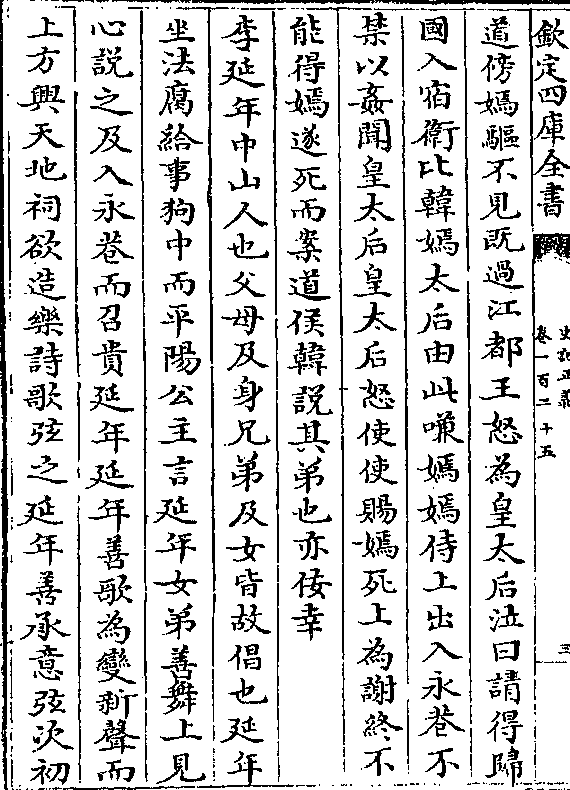 欽定四庫全書
史記正義
卷一百二十五
三
道傍嫣驅不見既過江都王怒為皇太后泣曰請得歸
國入宿衛比韓嫣太后由此嗛嫣嫣侍上出入永巷不
禁以姦聞皇太后皇太后怒使使賜嫣死上為謝終不
能得嫣遂死而案道侯韓說其弟也亦佞幸
李延年中山人也父母及身兄弟及女皆故倡也延年
坐法腐給事狗中而平陽公主言延年女弟善舞上見
心說之及入永巷而召貴延年延年善歌為變新聲而
上方興天地祠欲造樂詩歌弦之延年善承意弦次初